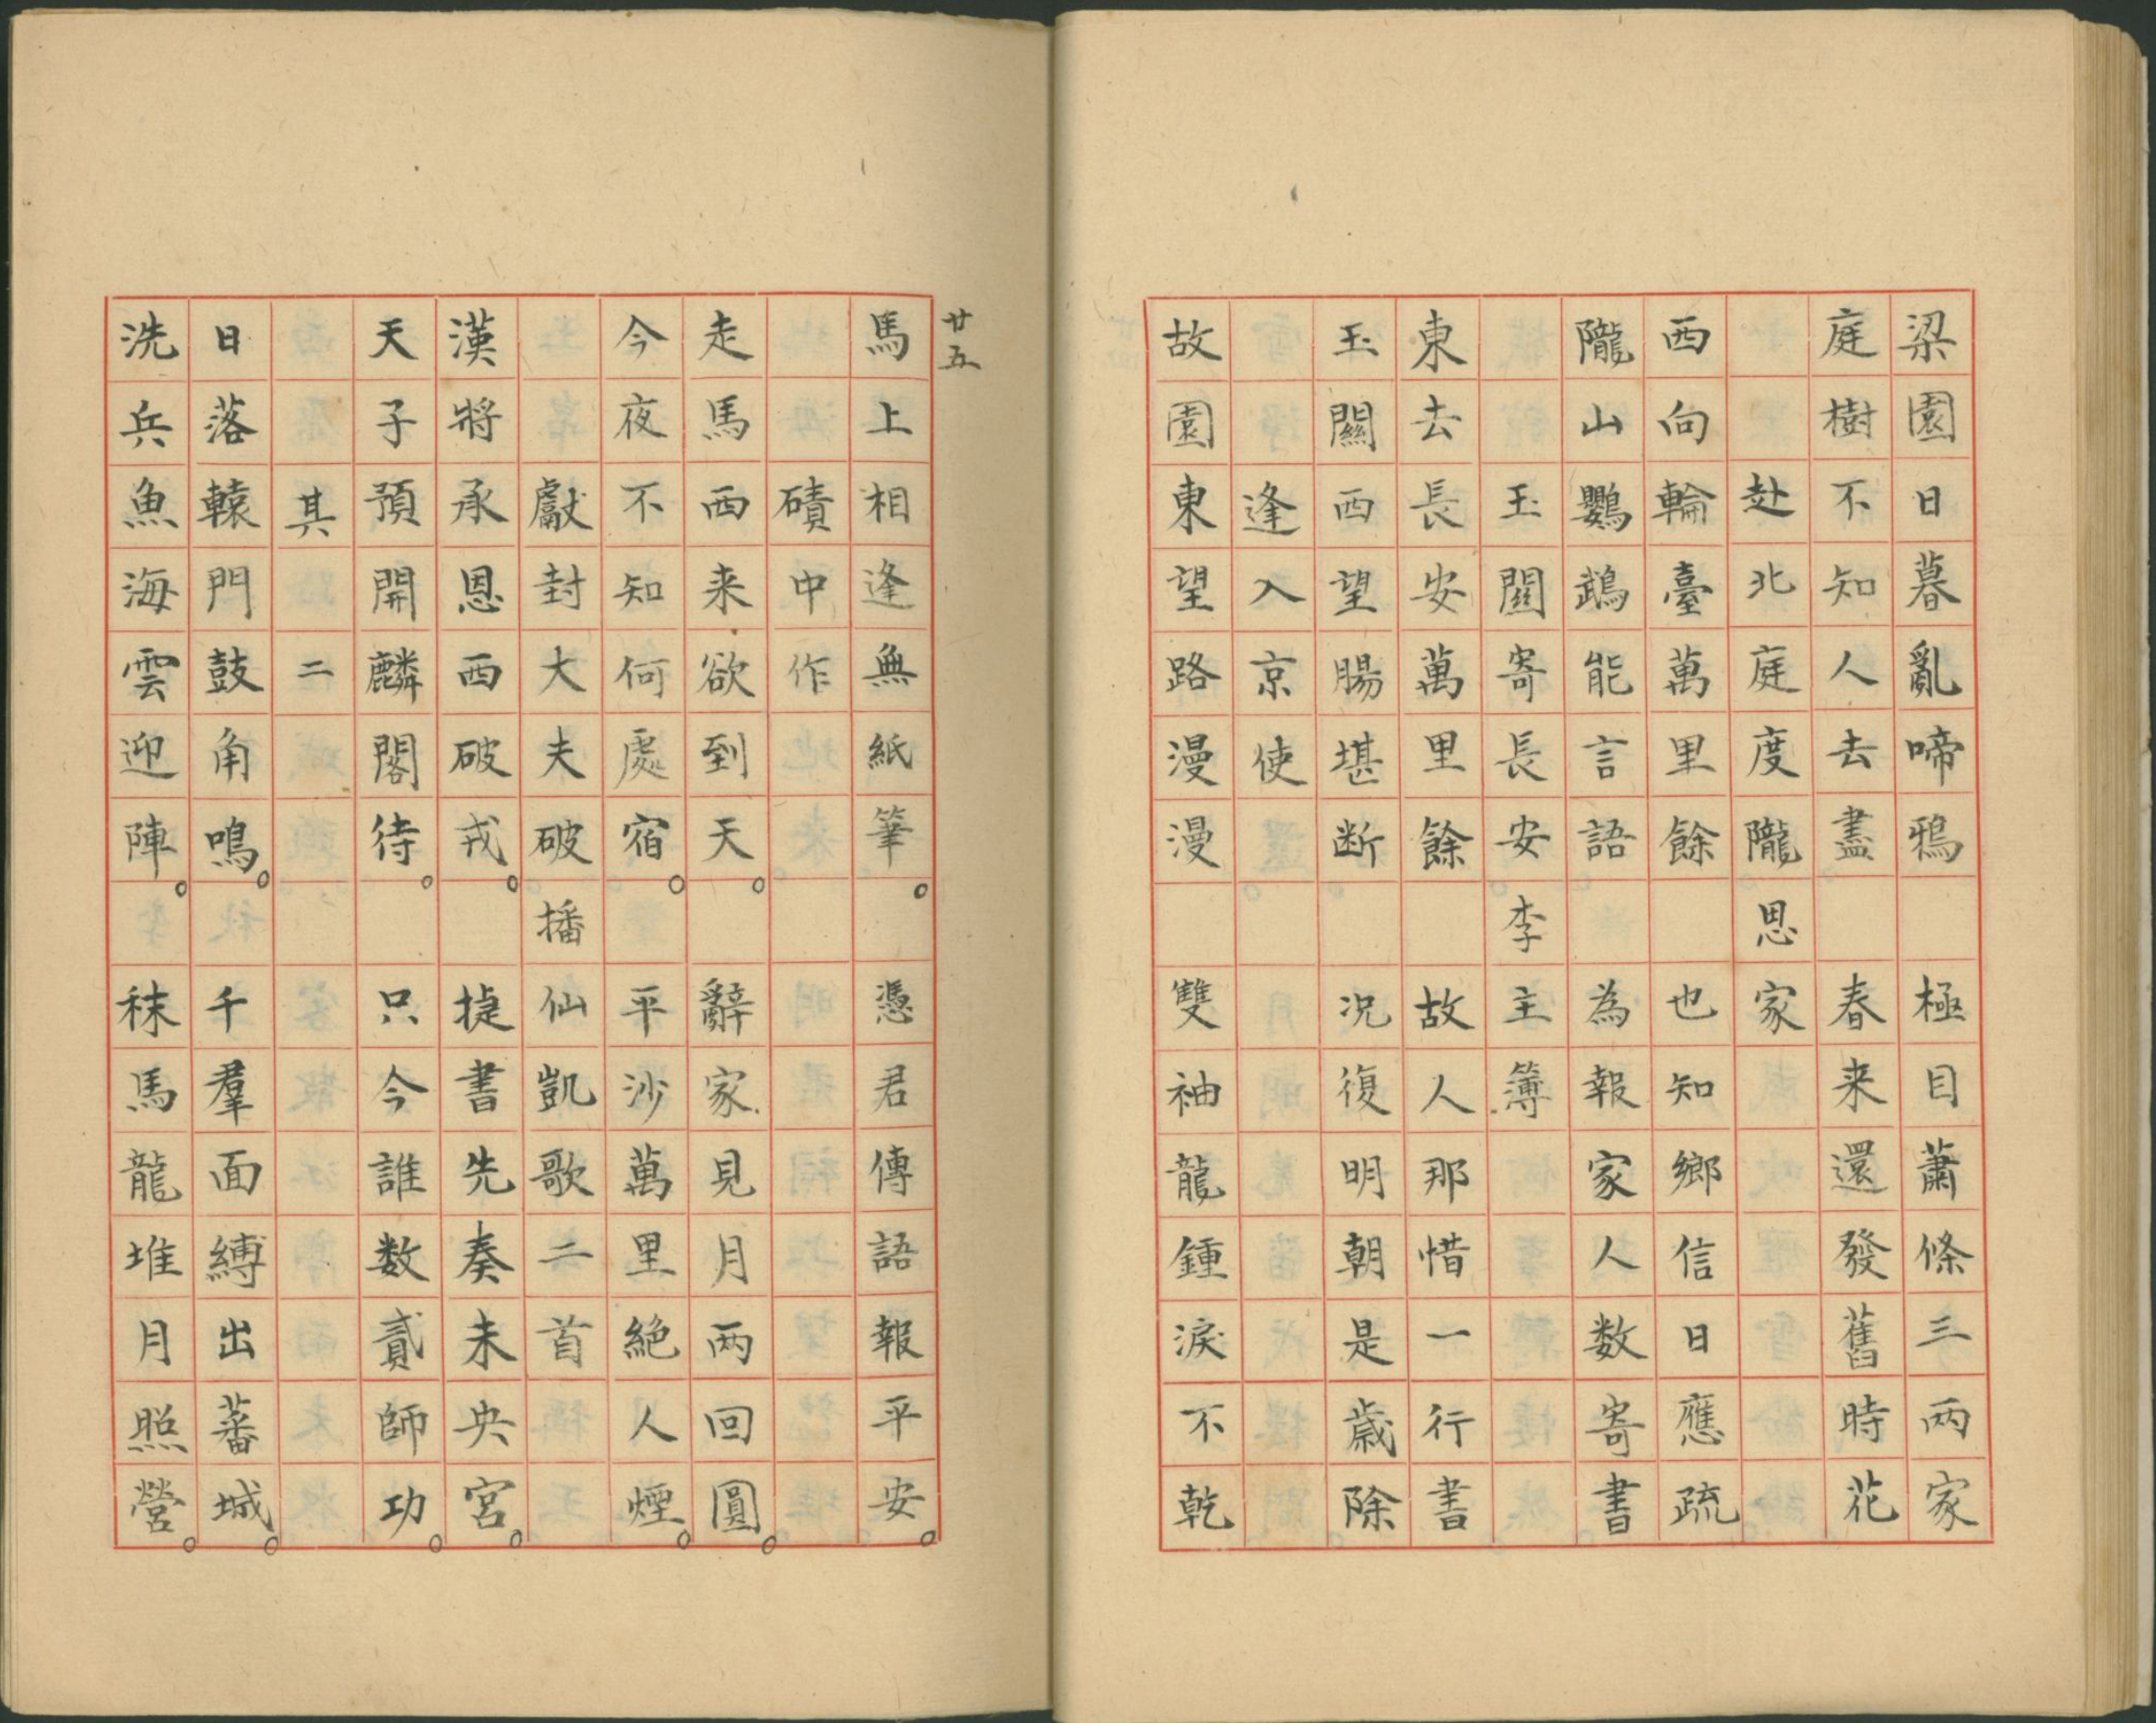 梁園日暮亂啼鴉　極目蕭條三兩家
庭樹不知人去盡　春来還發舊時花
赴北庭度隴思家
西向輪臺萬里餘　也知鄉信日應疏
隴山鸚鵡能言語　為報家人数寄書
玉關寄長安李主簿
東去長安萬里餘　故人那惜一行書
玉關西望腸堪断　况復明朝是歲除
逢入京使
故園東望路漫漫　雙袖龍鍾淚不乾
廿五
馬上相逢無紙筆。　憑君傳語報平安。
磧中作
走馬西来欲到天。　辭家見月兩回圓。
今夜不知何處宿。　平沙萬里絕人煙。
獻封大夫破播仙凱歌二首
漢將承恩西破戎。　捷書先奏未央宮。
天子預開麟閣待。　只今誰数貳師功。
其二
日落轅門鼓角鳴。　千羣面縛出蕃城。
洗兵魚海雲迎陣。　秣馬龍堆月照營。